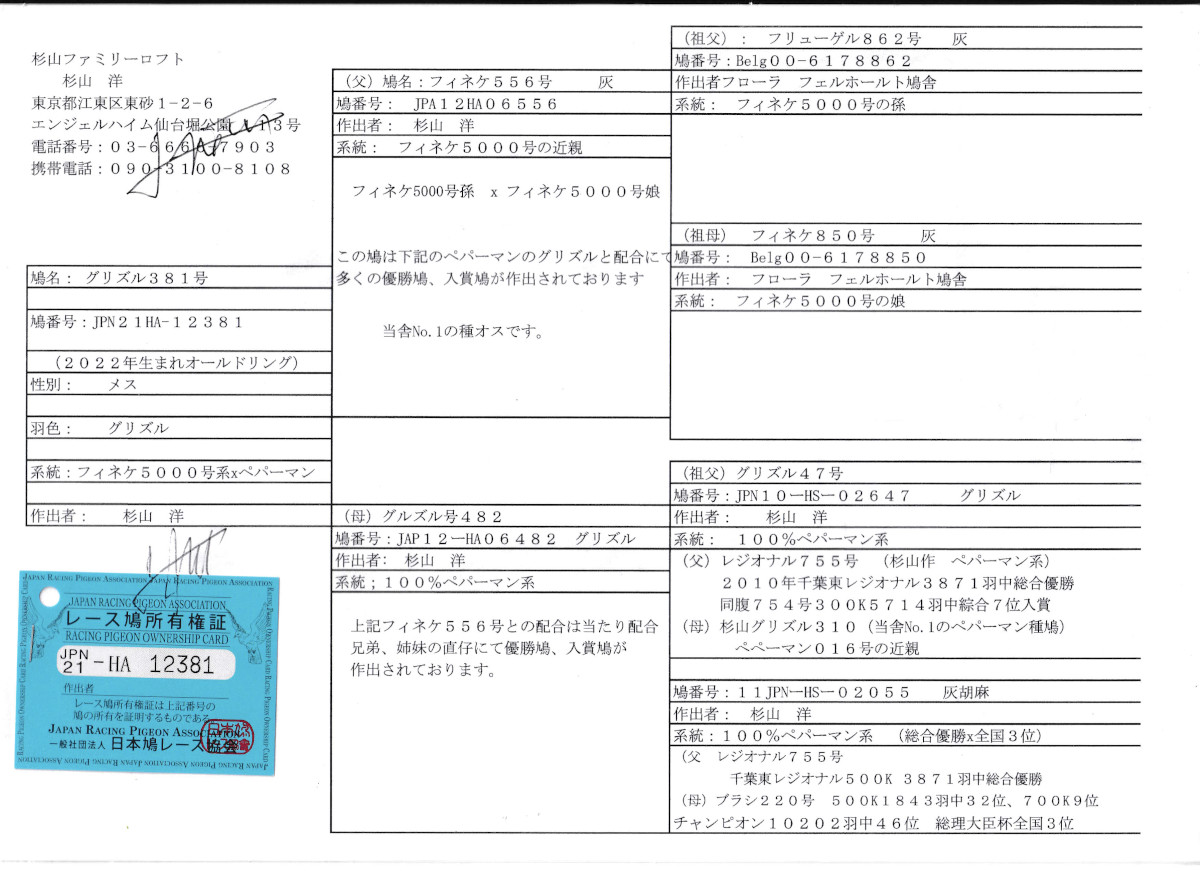 杉山ファミリーロフト
杉山　洋
東京都江東区東砂１－２－６
エンジェルハイム仙台堀公園Ａ１３号
電話番号：０３－６６６　－７９０３
携帯電話：０９０－３１００－８１０８
鳩名：　グリズル３８１号
鳩番号：JPN２１HA－１２３８１
（２０２２年生まれオールドリング）
性別：　　メス
羽色：　　グリズル
系統：フィネケ５０００号系xペパーマン
作出者：　　杉山　洋
（父）鳩名：フィネケ５５６号　　　灰
鳩番号：　JPA１２HA０６５５６
作出者：　杉山　洋
系統：　フィネケ５０００号の近親
フィネケ5000号孫　x フィネケ５０００号娘
この鳩は下記のペパーマンのグリズルと配合にて
多くの優勝鳩、入賞鳩が作出されております
当舎No.1の種オスです。
（母）グルズル号４８２
鳩番号：JAP１２ーHA０６４８２　グリズル
作出者：　杉山　洋
系統；１００％ペパーマン系
上記フィネケ５５６号との配合は当たり配合
兄弟、姉妹の直仔にて優勝鳩、入賞鳩が
作出されております。
（祖父）：　フリューゲル８６２号　　灰
鳩番号：Belg００－６１７８８６２
作出者フローラ　フェルホールト鳩舎
系統：　フィネケ５０００号の孫
（祖母）　フィネケ８５０号　　　灰
鳩番号：　Belg００－６１７８８５０
作出者：　フローラ　フェルホールト鳩舎
系統：　フィネケ５０００号の娘
（祖父）グリズル４７号
鳩番号：JPN１０ーHSー０２６４７　　　グリズル
作出者：　　杉山　洋
系統：　１００％ペパーマン系
（父）レジオナル７５５号　（杉山作　ペパーマン系）
２０１０年千葉東レジオナル３８７１羽中総合優勝
同腹７５４号３００K５７１４羽中綜合７位入賞
（母）杉山グリズル３１０（当舎No.1のペパーマン種鳩）
ペパーマン０１６号の近親
鳩番号：１１JPNーHSー０２０５５　　灰胡麻
作出者：　杉山　洋
系統：１００％ペパーマン系　（総合優勝x全国３位）
（父　レジオナル７５５号
千葉東レジオナル５００K ３８７１羽中総合優勝
（母）ブラシ２２０号　５００K１８４３羽中３２位、７００K９位
チャンピオン１０２０２羽中４６位　総理大臣杯全国３位
JAPAN RACING PIGEON ASSOCIATION JAPAN RACING PIGEON ASSOCIATION
JAPAN RACING PIGEON ASSOCIATION
レース鳩所有権証
RACING PIGEON OWNERSHIP CARD
JPN
21 -HA 12381
作出者
レース鳩所有権証は上記番号の
鳩の所有を証明するものである
JAPAN RACING PIGEON ASSOCIATION
一般社団法人 日本鳩レース協会